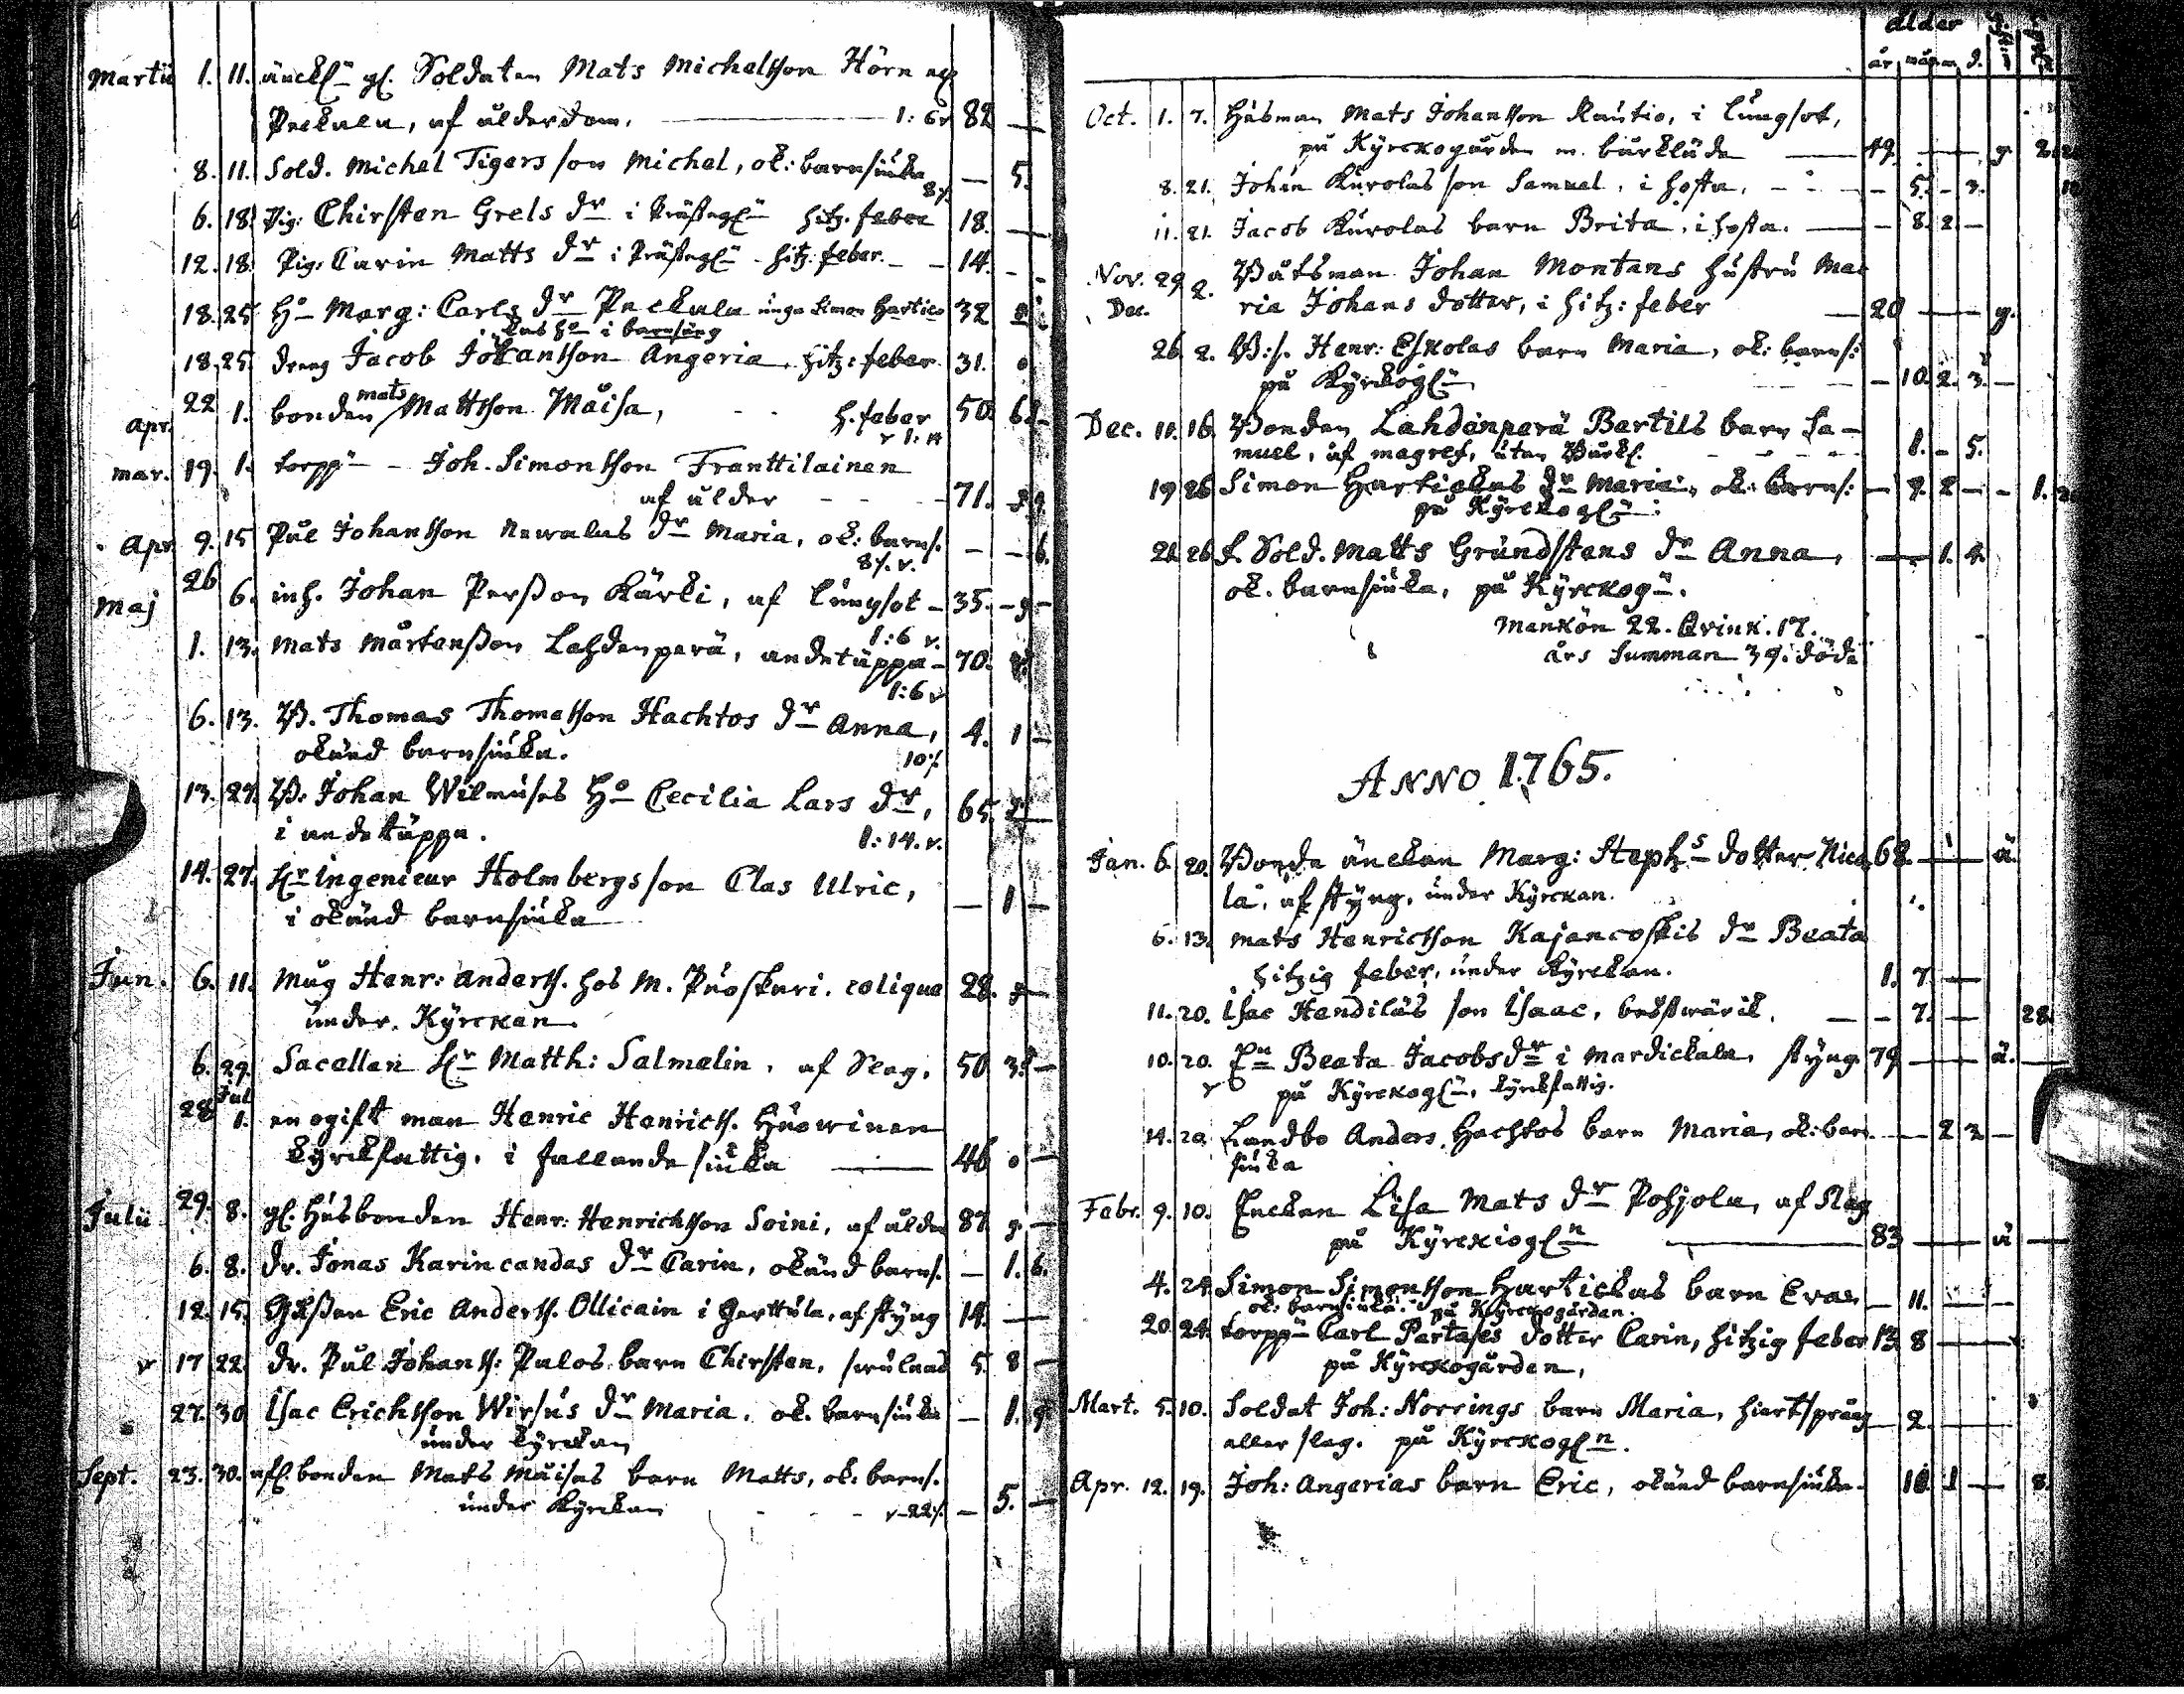 Martii 1. 11. änckl. gl. Soldaten Mats Michelsson Hörn
Peckala, af ålderdom. 1: 6 v 82 —
8. 11. Sold. Michel Tigers son Michel, ok: barnsiuka — 5.
8%
6. 18. Pig: Chirsten Grels dr i hitz. feber 18. —
12. 18. Pig: Carin Matts dr i hitz feber. — 14. -
18. 25. Ho Marg: Carls dr Peckala unga Simon Hartic 32
kas ho i barnsäng
18. 25. dreng Jacob Johansson Angeria hitz: feber. 31.
Apr. 22 1. bonden mats Mattsson Maisa, h. feber 50. 6
mar. 19. 1. torpp - Joh. Simonsson Franttilainen
af ålder - - 71.
Apr. 9. 15 Pål Johansson Newalas dr Maria, ok: barns. — — 6.
8%. v.
Maj 26 6. inh. Johan Persson Kärki, af lungsot - 35. - 9 -
1:6 v.
1. 13. Mats Mårtensson Lahdenperä, andetäppa - 70.
1:6 v
6. 13. B. Thomas Thomasson Hachtos dr Anna, 4. 1 —
okänd barnsiuka. 10%
13. 27. B. Johan Wilmuses Ho Cecilia Lars dr, 65.
i andetäppa. 1:14. v.
14. 27. Hr Ingenieur Holmbergs son Clas Ulric, — 1 —
i okänd barnsiuka
Jun. 6. 11. Mag Henr: Anderss. hos M. Puoskari. colique 28.
under Kyrckan.
6. 29. Sacellan Hr Matth: Salmelin, af slag. 50 3.
28 Jul 1. en ogift man Henric Henricss. Huowinen
kyrckfattig. i fallande siuka — 46 0 —
Julii 29. 8. gl. Husbonden Henr: Henrichsson Soini, af ålder 87 9. —
6. 8. dr. Jonas Karincandas dr Carin, okänd barns. — 1. 6.
12. 15. Gåssen Eric Anderss. Ollicain i Gerttula, af styng 14. —
v 17 22. dr. Pål Johanss: Palos barn Chirsten, swulnad 5. 8 —
27. 30 Isac Erichsson Wirsus dr Maria. ok. barnsiuka — 1. 9.
under kyrckan
Sept. 23. 30. afl. bonden Mats Maisas barn Matts, ok: barns.
under Kyrckan - - - v-22%. — 5. —
ålder
år, mån. d.
Oct. 1. 7. Husman Mats Johansson Rautio, i lungsot,
på Kyrckogården m. bårkläde — 49. — g. 2.
8. 21. Johan Kurolas son Samuel, i hosta, - - 5. - 3.
11. 21. Jacob Kurolas barn Brita, i hosta. — - 8. 2. —
Nov. 29 2. Båtsman Johan Montans hustru Ma
Dec. ria Johans dotter, i hitz: feber — 20 — — g.
26 2. B:s. Henr: Eskolas barn Maria, ok: barns:
på Kyrckogln — — 10. 2. 3. —
Dec. 11. 16. Bonden Lahdenperä Bartils barn Sa-
muel, af magref, utan - - - 1. - 5.
19 26 Simon Hartickas dr Maria, ok: barns: — 9. 2 — - 1.
på Kyrckogln:
21. 26. f. Sold. Matts Grundstens dr Anna, — 1. 4.
ok. barnsiuka, på Kyrckogn.
Mankön 22. Qvink. 17.
års Summan 39. döda
ANNO 1765.
Jan. 6. 20. Bonde änckan Marg: Stephs dotter Nico 68. — ä.
la, af styng, under Kyrckan.
6. 13. Mats Henricsson Kajancoskis dr Beata
hitzig feber, under Kyrckan. 1. 7. —
11. 20. Isac Handilas son Isaac, bröstwärck. — - 7. — 28.
10. 20. En Beata Jacobsdr i Mardickala, styng. 79 — — ä. —
på Kyrckogln, kyrckfattig.
14. 20. Landbo Anders Hachtos barn Maria, ok: barn — 2 2 —
siuka
Febr. 9. 10. Enckan Lisa Mats dr Pohjola, af slag
på Kyrckiogln — 83 — — ä —
4. 24. Simon Simonsson Hartickas barn Eva — 11. — —
ok: barnsiuka. på Kyrckogården.
20 24. torpp Carl Partases dotter Carin, hitzig feber 13 8 —
på Kyrckogården,
Mart. 5. 10. Soldat Joh: Norrings barn Maria, hiertspräng — 2. —
eller slag. på Kyrckogln.
Apr. 12. 19. Joh: Angerias barn Eric, okänd barnsiuka. 10. 1 — 8.